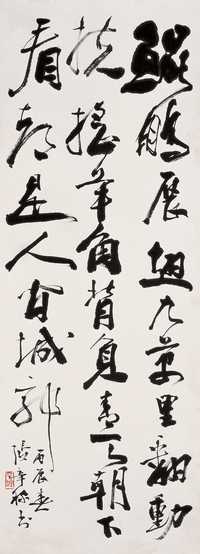 鯤鵬展翅九萬里翻動
扶搖羊角背負青天朝下
看都是人間城郭
丙辰春
書